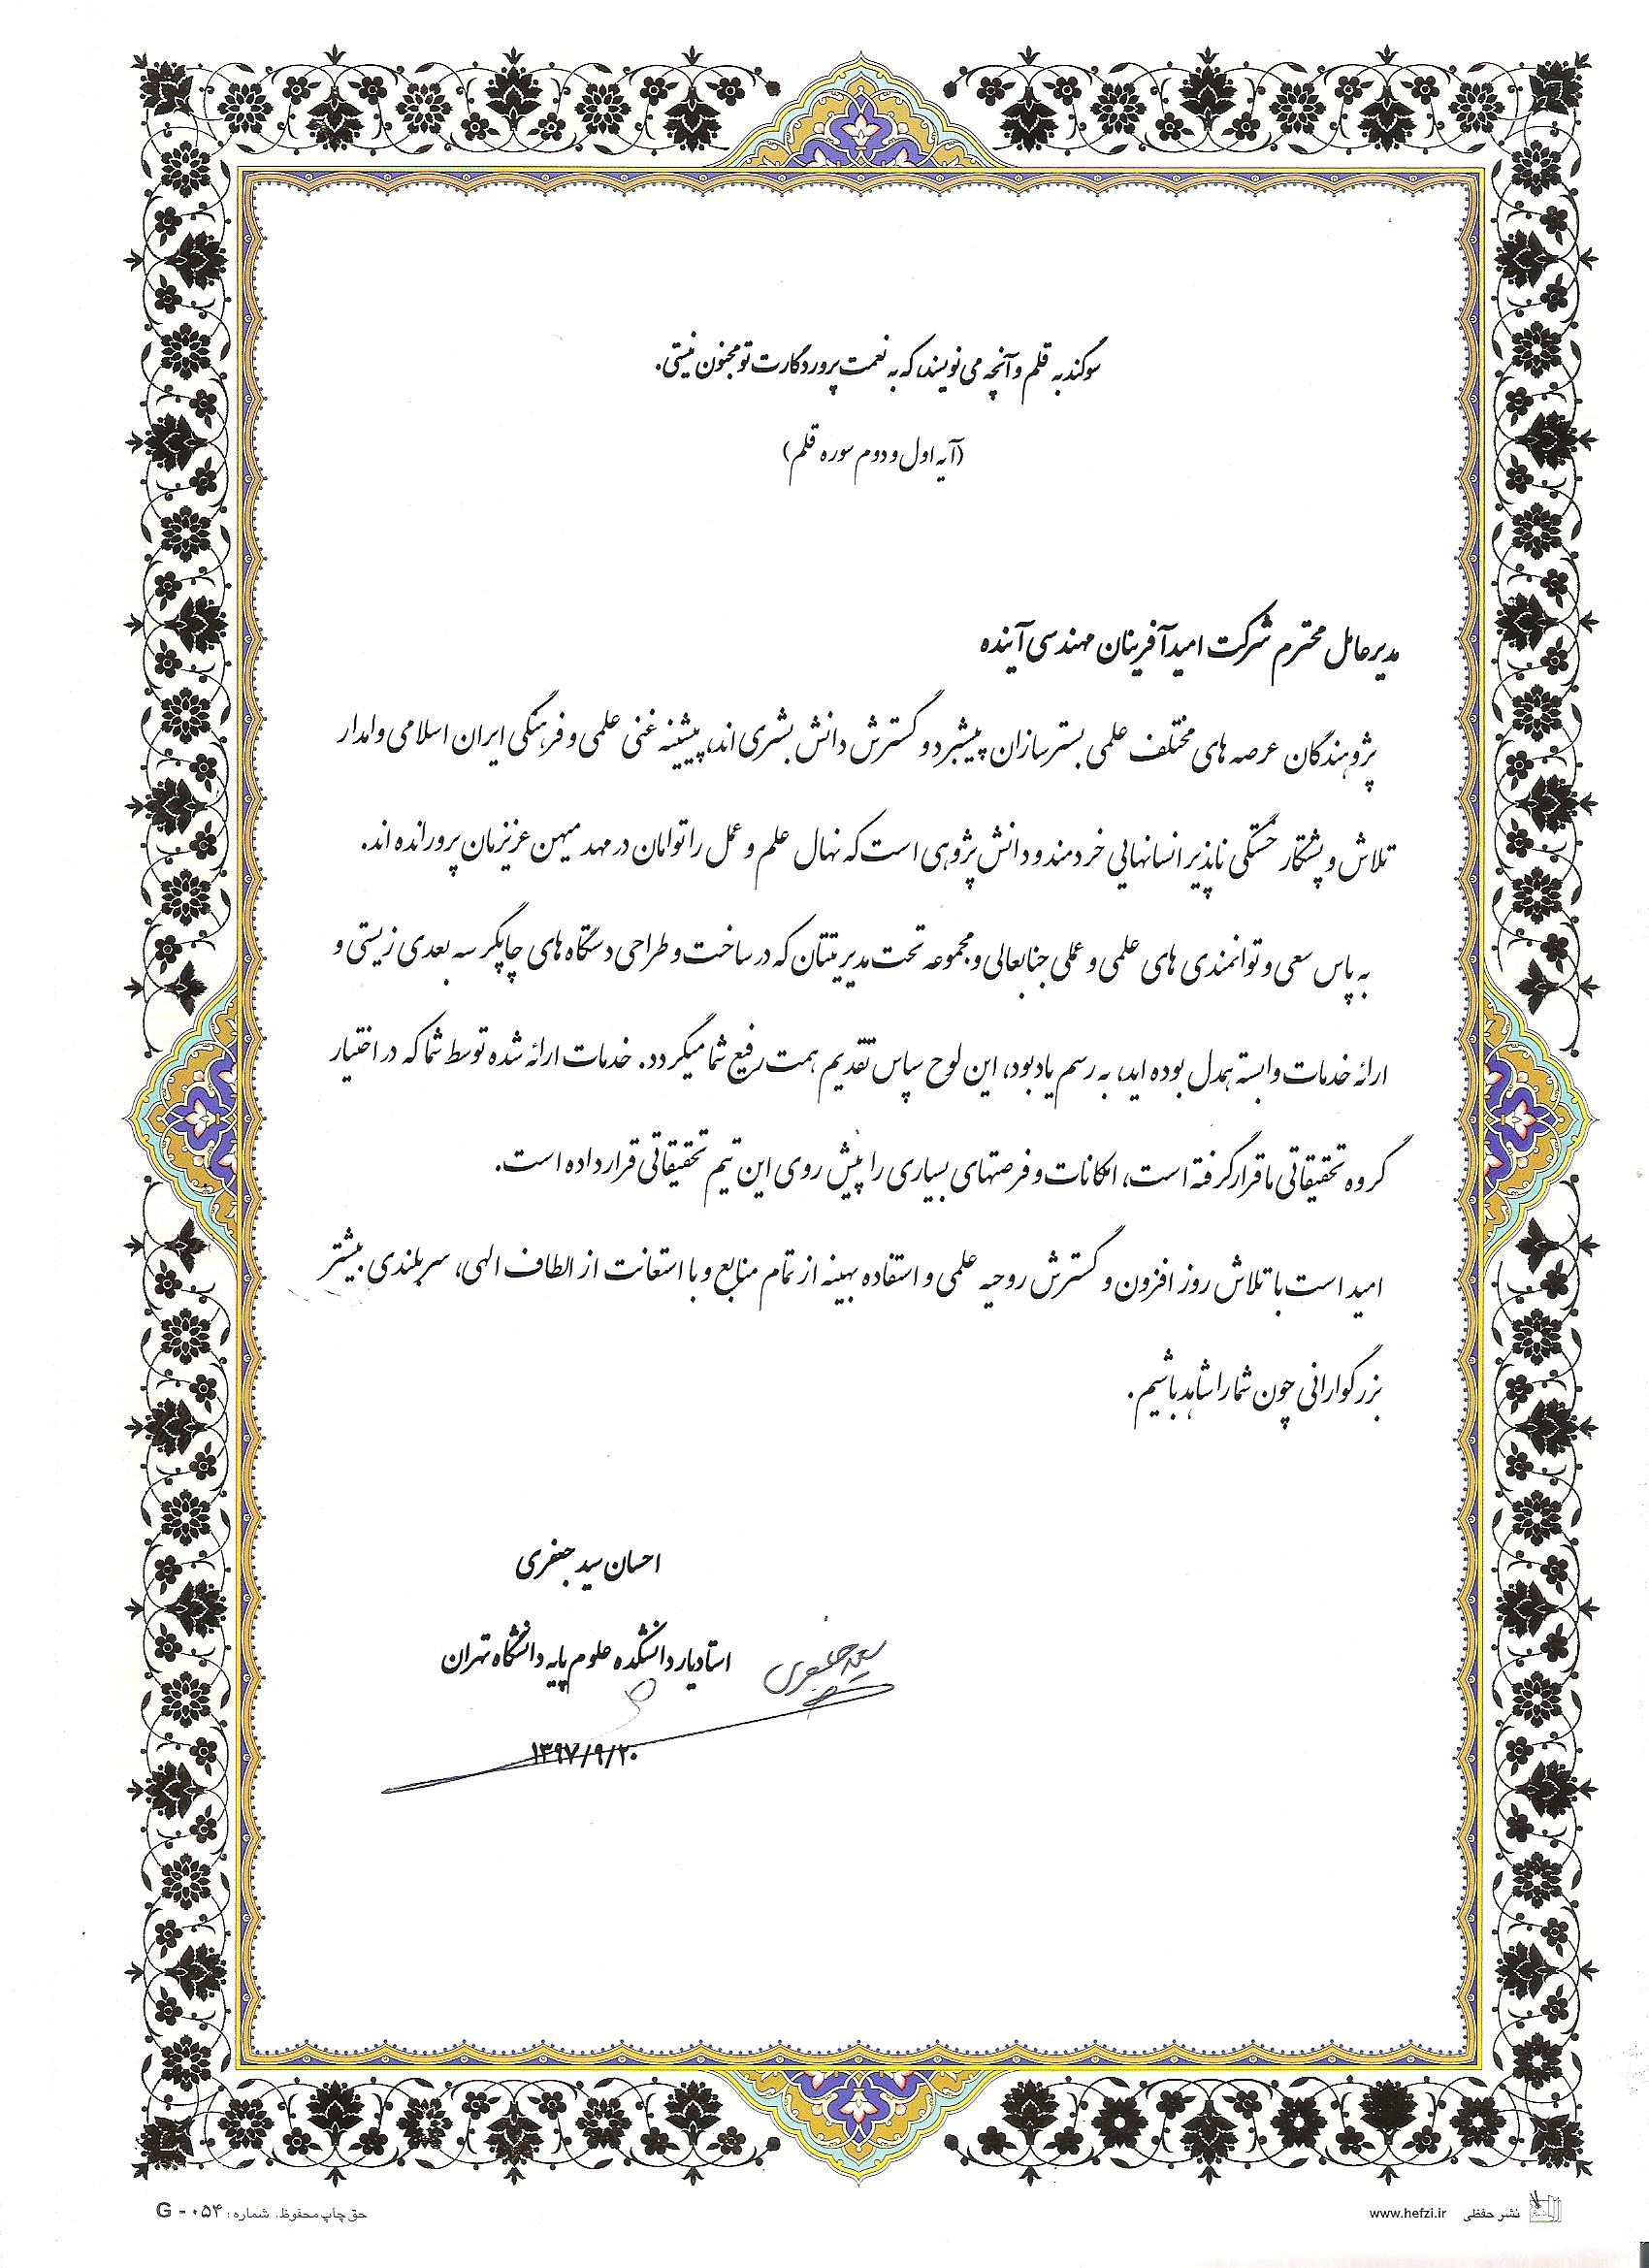 سوگند به قلم و آنچه می نویسند، که به نعمت پروردگارت تو مجنون نیستی.
(آیه اول و دوم سوره قلم)
مدیر عامل محترم شرکت امید آفرینان مهندسی آینده
پژوهندگان عرصه های مختلف علمی بسترسازان پیشبرد و گسترش دانش بشری اند، پیشینه غنی علمی و فرهنگی ایران اسلامی وامدار
تلاش و پشتکار خستگی ناپذیر انسانهایی خردمند و دانش پژوهی است که نهال علم و عمل را توامان در مهد میهن عزیزمان پرورانده اند.
به پاس سعی و توانمندی های علمی و عملی جنابعالی و مجموعه تحت مدیریتتان که در ساخت و طراحی دستگاه های چاپگر سه بعدی زیستی و
ارائه خدمات وابسته همدل بوده اید، به رسم یادبود، این لوح سپاس تقدیم همت رفیع شما میگردد. خدمات ارائه شده توسط شما که در اختیار
گروه تحقیقاتی ما قرار گرفته است، امکانات و فرصتهای بسیاری را پیش روی این تیم تحقیقاتی قرار داده است.
امید است با تلاش روز افزون و گسترش روحیه علمی و استفاده بهینه از تمام منابع و با استعانت از الطاف الهی، سربلندی بیشتر
بزرگوارانی چون شما را شاهد باشیم.
احسان سید جعفری
استادیار دانشکده علوم پایه دانشگاه تهران
سید جعفری
۱۳۹۷/۹/۲۰
نشر حفظی www.hefzi.ir
حق چاپ محفوظ. شماره: G - ۰۵۴